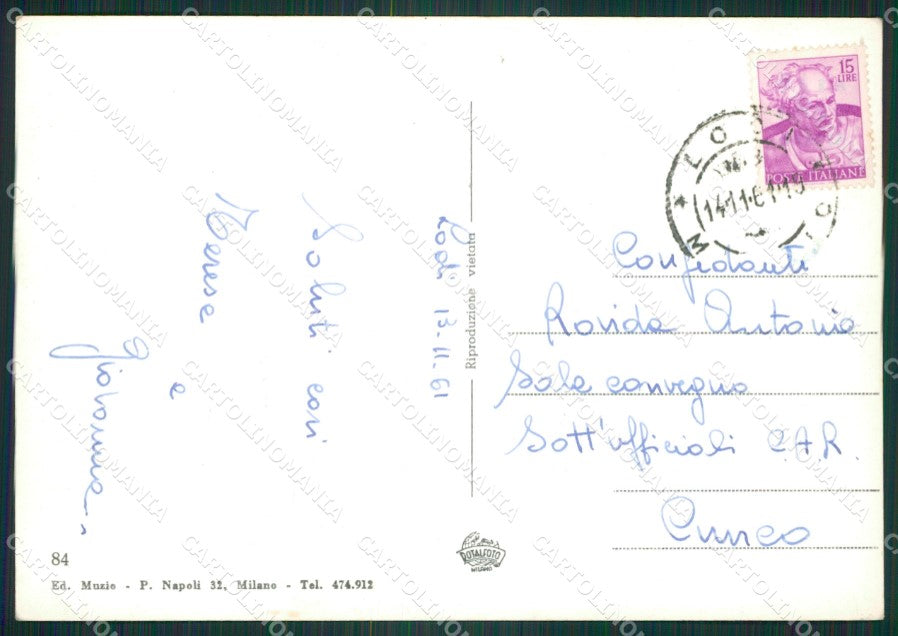 Lodi 13-11-61
Saluti cari
Terese
e
Giovanna
15
LIRE
POSTE ITALIANE
LODI
14.11.61.19
Confidanti
Rovida Antonio
Sala convegno
Sott'ufficiali C.A.R.
Cuneo
Riproduzione vietata
ROTALFOTO
MILANO
84
Ed. Muzio - P. Napoli 32, Milano - Tel. 474.912
CARTOLINOMANIA